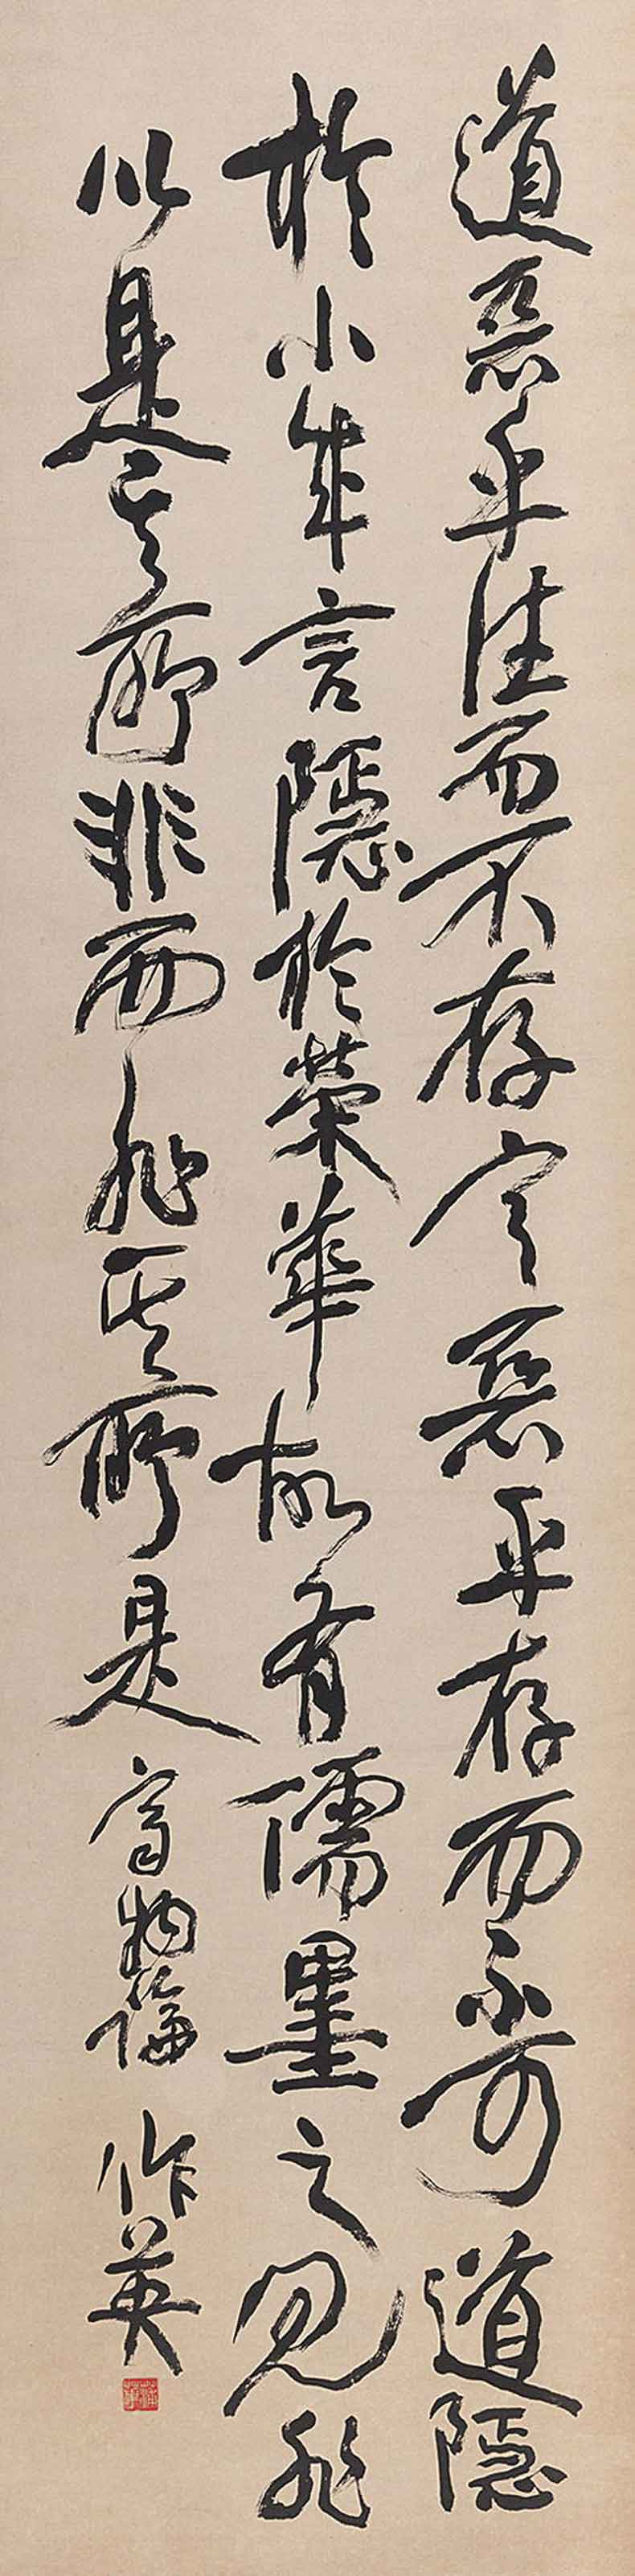 道惡乎往而不存言惡乎存而不可道隱
於小成言隱於榮華故有儒墨之是非
以是其所非而非其所是 齊物論 作英
蒲華